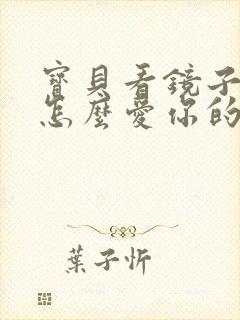 寶貝看鏡子
怎麼愛你的
葉子忻